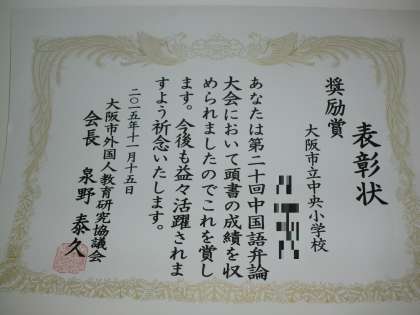 表彰状
奨励賞
大阪市立中央小学校
あなたは第二十回中国語弁論
大会において頭書の成績を収
められましたのでこれを賞し
ます。今後も益々活躍されま
すよう祈念いたします。
二〇一五年十一月十五日
大阪市外国人教育研究協議会
会長 泉野 泰久